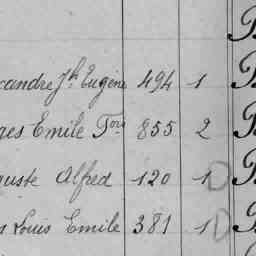 xandre Jh Eugène 494 1
ges Emile Fois 855 2
guste Alfred 120 1
s Louis Emile 381 1